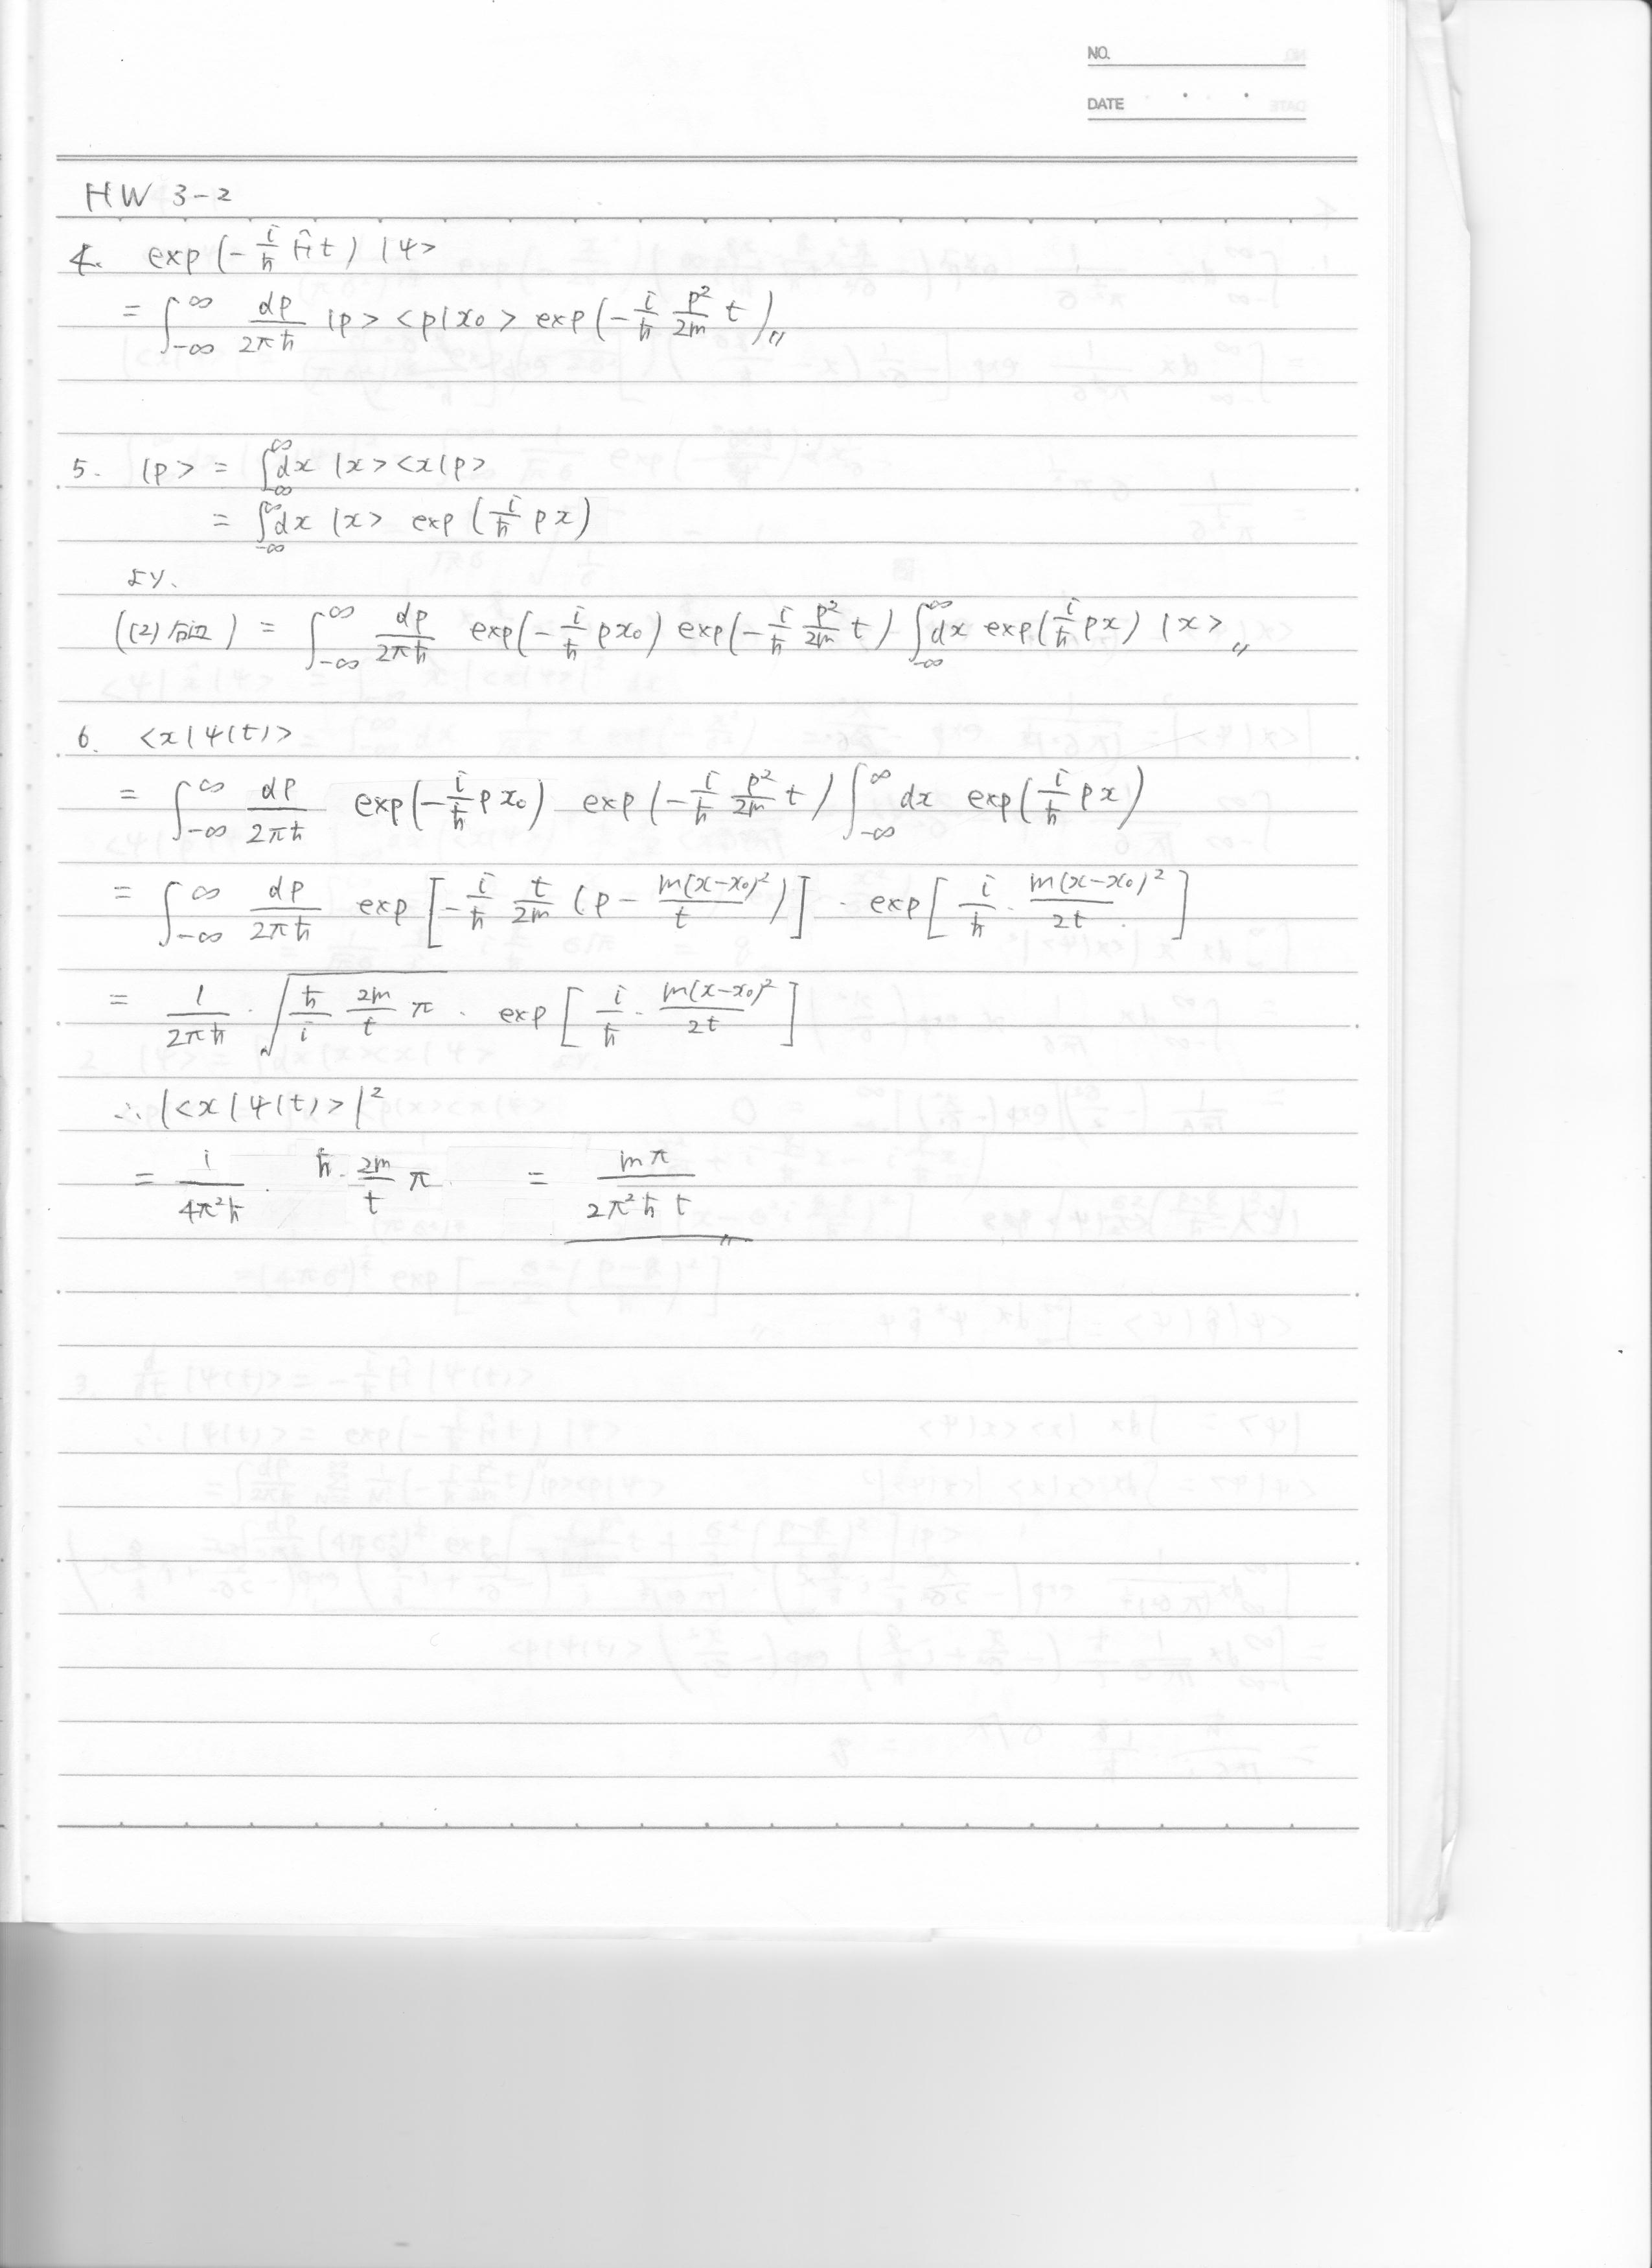 NO.
DATE
HW 3-2
4. exp(-i/ħ Ĥt) |ψ>
= ∫_{-∞}^{∞} dp/2πħ |p> <p|x₀> exp(-i/ħ p²/2m t)〃
5. |p> = ∫_{-∞}^{∞} dx |x><x|p>
= ∫_{-∞}^{∞} dx |x> exp(i/ħ px)
より.
((2)右辺) = ∫_{-∞}^{∞} dp/2πħ exp(-i/ħ px₀) exp(-i/ħ p²/2m t) ∫_{-∞}^{∞} dx exp(i/ħ px) |x>〃
6. <x|ψ(t)>
= ∫_{-∞}^{∞} dp/2πħ exp(-i/ħ px₀) exp(-i/ħ p²/2m t) ∫_{-∞}^{∞} dx exp(i/ħ px)
= ∫_{-∞}^{∞} dp/2πħ exp[-i/ħ t/2m (p - m(x-x₀)²/t)] · exp[i/ħ · m(x-x₀)²/2t]
= 1/2πħ · √(ħ/i 2m/t π) · exp[i/ħ · m(x-x₀)²/2t]
∴ |<x|ψ(t)>|²
= 1/4π²ħ · ħ · 2m/t π = mπ/2π²ħt〃